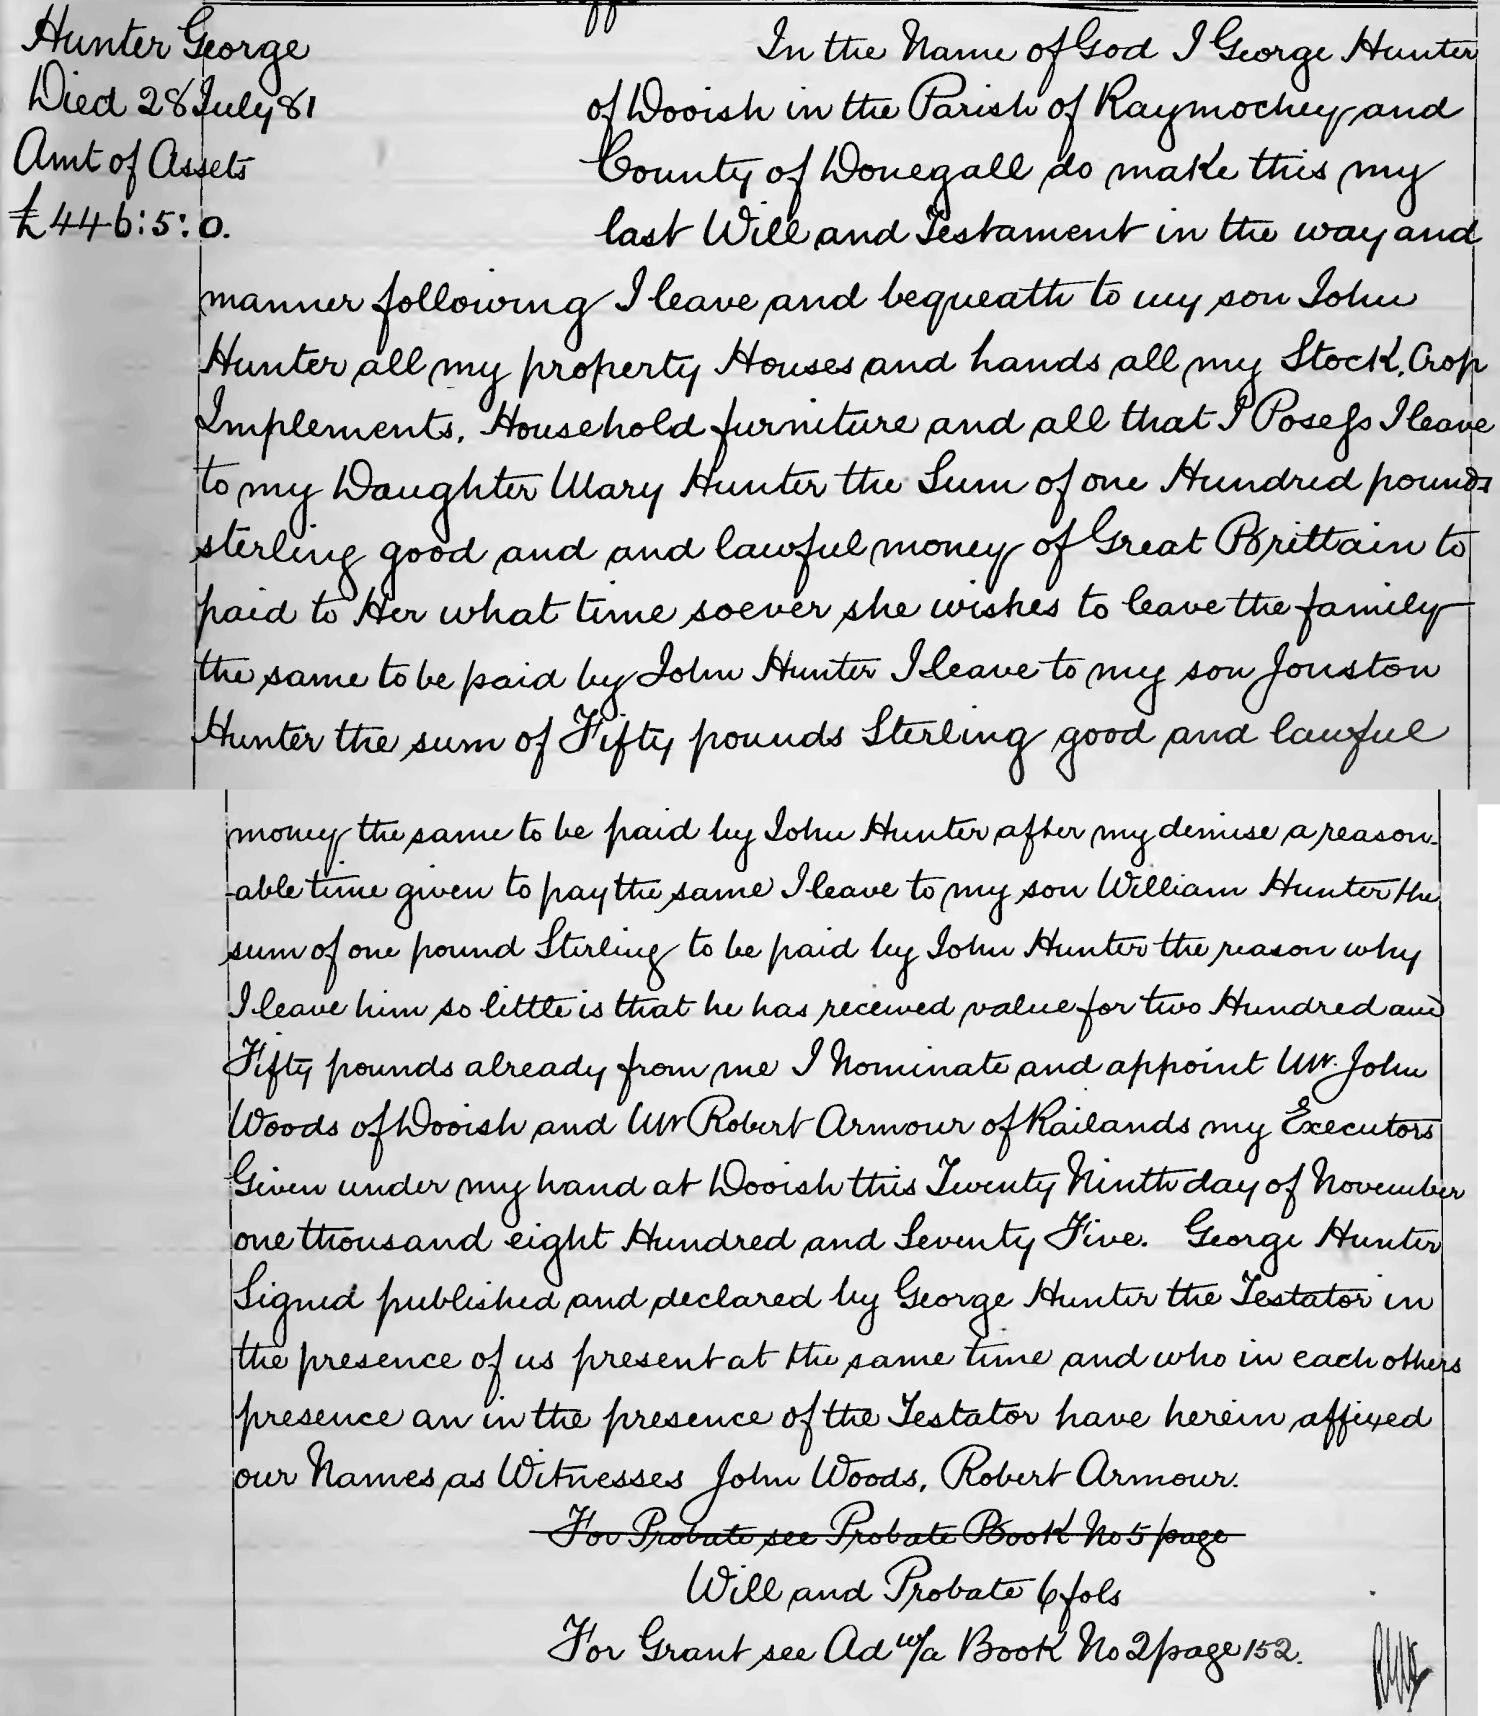 Hunter George
Died 28 July 81
Amt of Assets
£446:5:0.
In the Name of God I George Hunter
of Dooish in the Parish of Raymochey and
County of Donegall do make this my
last Will and Testament in the way and
manner following I leave and bequeath to my son John
Hunter all my property Houses and hands all my Stock, Crop
Implements, Household furniture and all that I Posess I leave
to my Daughter Mary Hunter the Sum of one Hundred pounds
sterling good and and lawful money of Great Brittain to
paid to Her what time soever she wishes to leave the family
the same to be paid by John Hunter I leave to my son Jonston
Hunter the sum of Fifty pounds Sterling good and lawful
money the same to be paid by John Hunter after my demise a reason-
-able time given to pay the same I leave to my son William Hunter the
sum of one pound Sterling to be paid by John Hunter the reason why
I leave him so little is that he has received value for two Hundred and
Fifty pounds already from me I Nominate and appoint Mr. John
Woods of Dooish and Mr Robert Armour of Railands my Executors
Given under my hand at Dooish this Twenty Ninth day of November
one thousand eight Hundred and Seventy Five. George Hunter
Signed published and declared by George Hunter the Testator in
the presence of us present at the same time and who in each others
presence an in the presence of the Testator have herein affixed
our Names as Witnesses John Woods, Robert Armour.
For Probate see Probate Book No 5 page
Will and Probate 6 fols
For Grant see Ad w/a Book No 2 page 152.